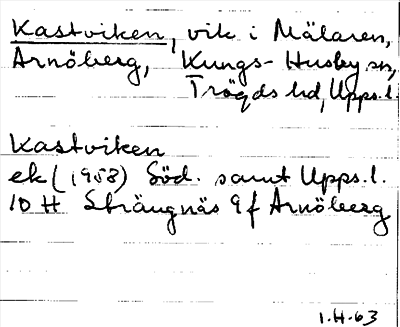 Kastviken, vik i Mälaren,
Arnöberg, Kungs-Husby sn,
Trögds hd, Upps. l.
Kastviken
ek (1953) Söd. samt Upps. l.
10 H Strängnäs 9 f Arnöberg
1.H.63